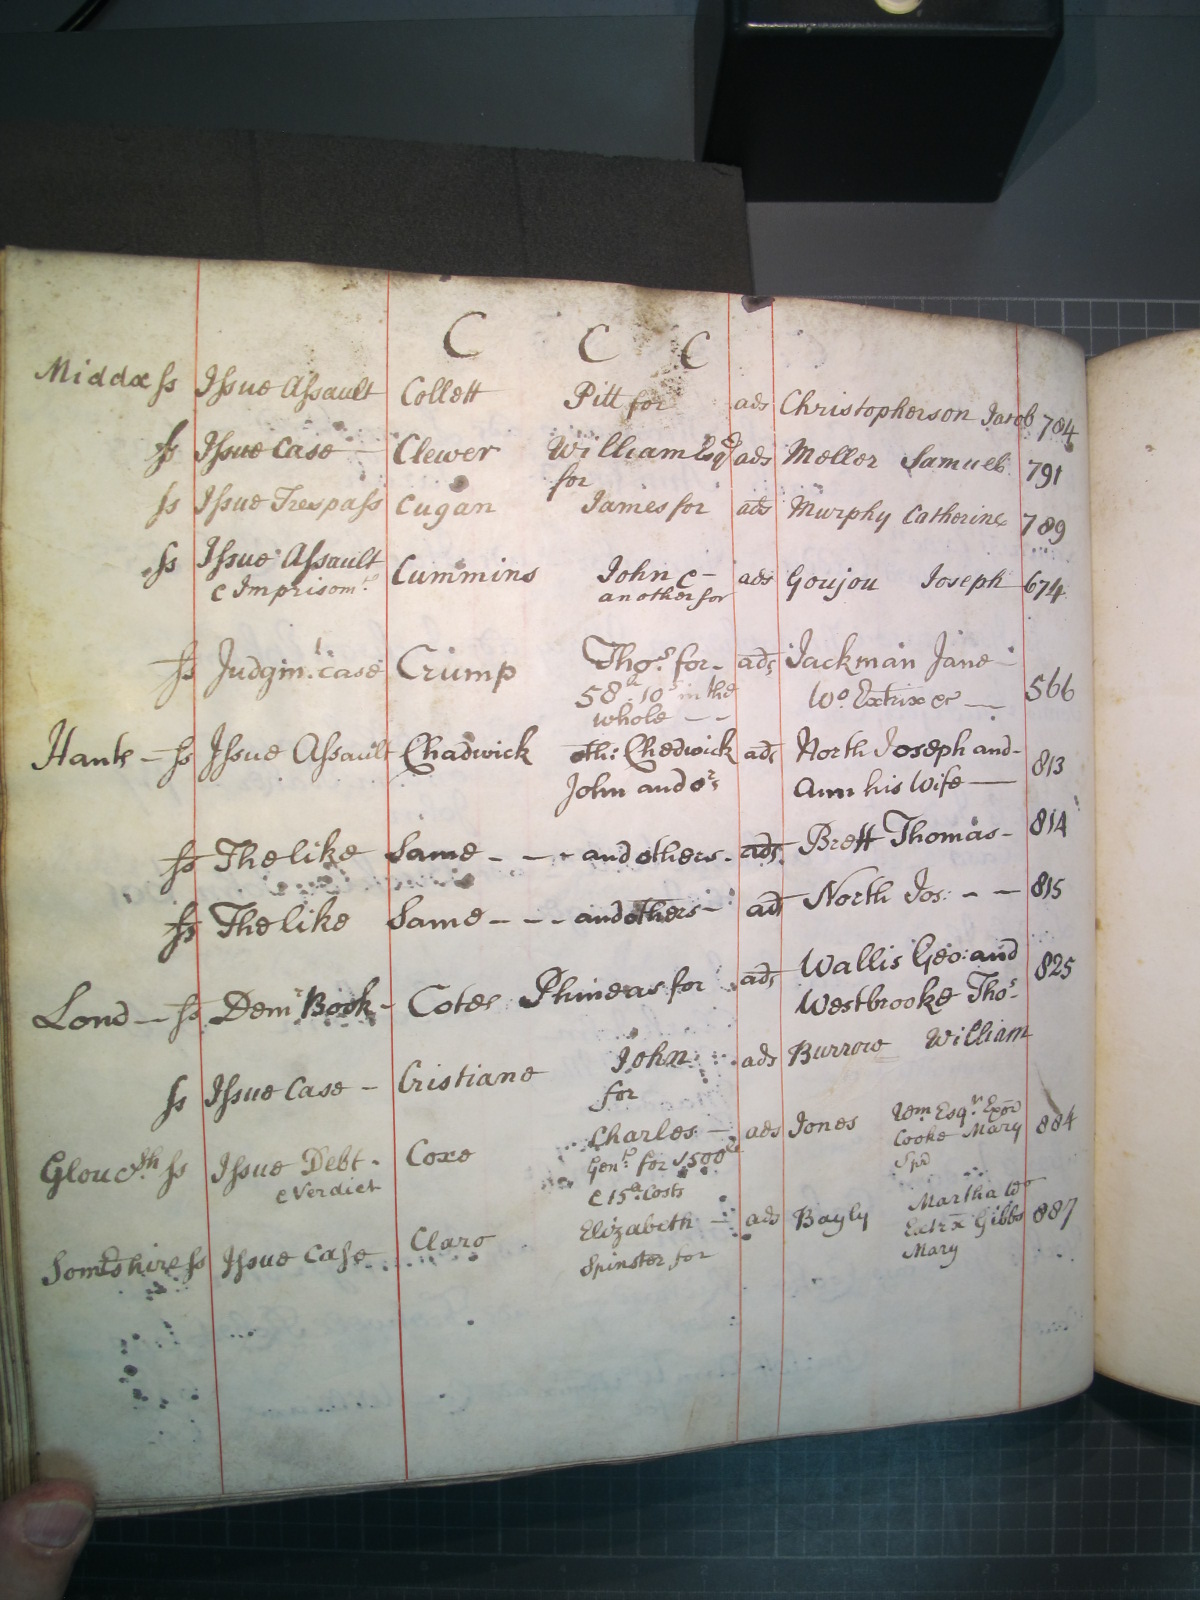 C C C
Middx ss Issue Assault Collett Pitt for ads Christopherson Jacob 784
ss Issue Case Clewer William Esqr ads Meller Samuel 791
for
ss Issue Trespass Cugan James for ads Murphy Catherine 789
ss Issue Assault Cummins John & ads Goujou Joseph 674
& Imprisomt. another for
ss Judgmt. Case Crump Thos. for ads Jackman Jane
58li. 10s in the Wo. Extrix &c 566
whole
Hants ss Issue Assault Chadwick oth: Chedwick ads North Joseph and
John and ors Ann his Wife 813
ss The like Same and others ads Brett Thomas 814
ss The like Same and others ads North Jos: 815
Lond ss Demr Book Cotes Phineas for ads Wallis Geo: and 825
Westbrooke Thos.
ss Issue Case Cristiane John ads Burrow William
for
Gloucrsh ss Issue Debt Coxe Charles ads Jones Wm. Esqr. Exor 884
& Verdict Gent. for 1500li Cooke Mary
& 15li. Costs Spr
Somtshire ss Issue Case Clare Elizabeth ads Bayly Martha Wo 887
Spinster for Extrx Gibbs
Mary